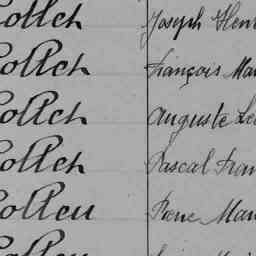 Collet Joseph Henr
Collet François Mar
Collet Auguste Le
Collet Pascal Fran
Colleu Pierre Mar